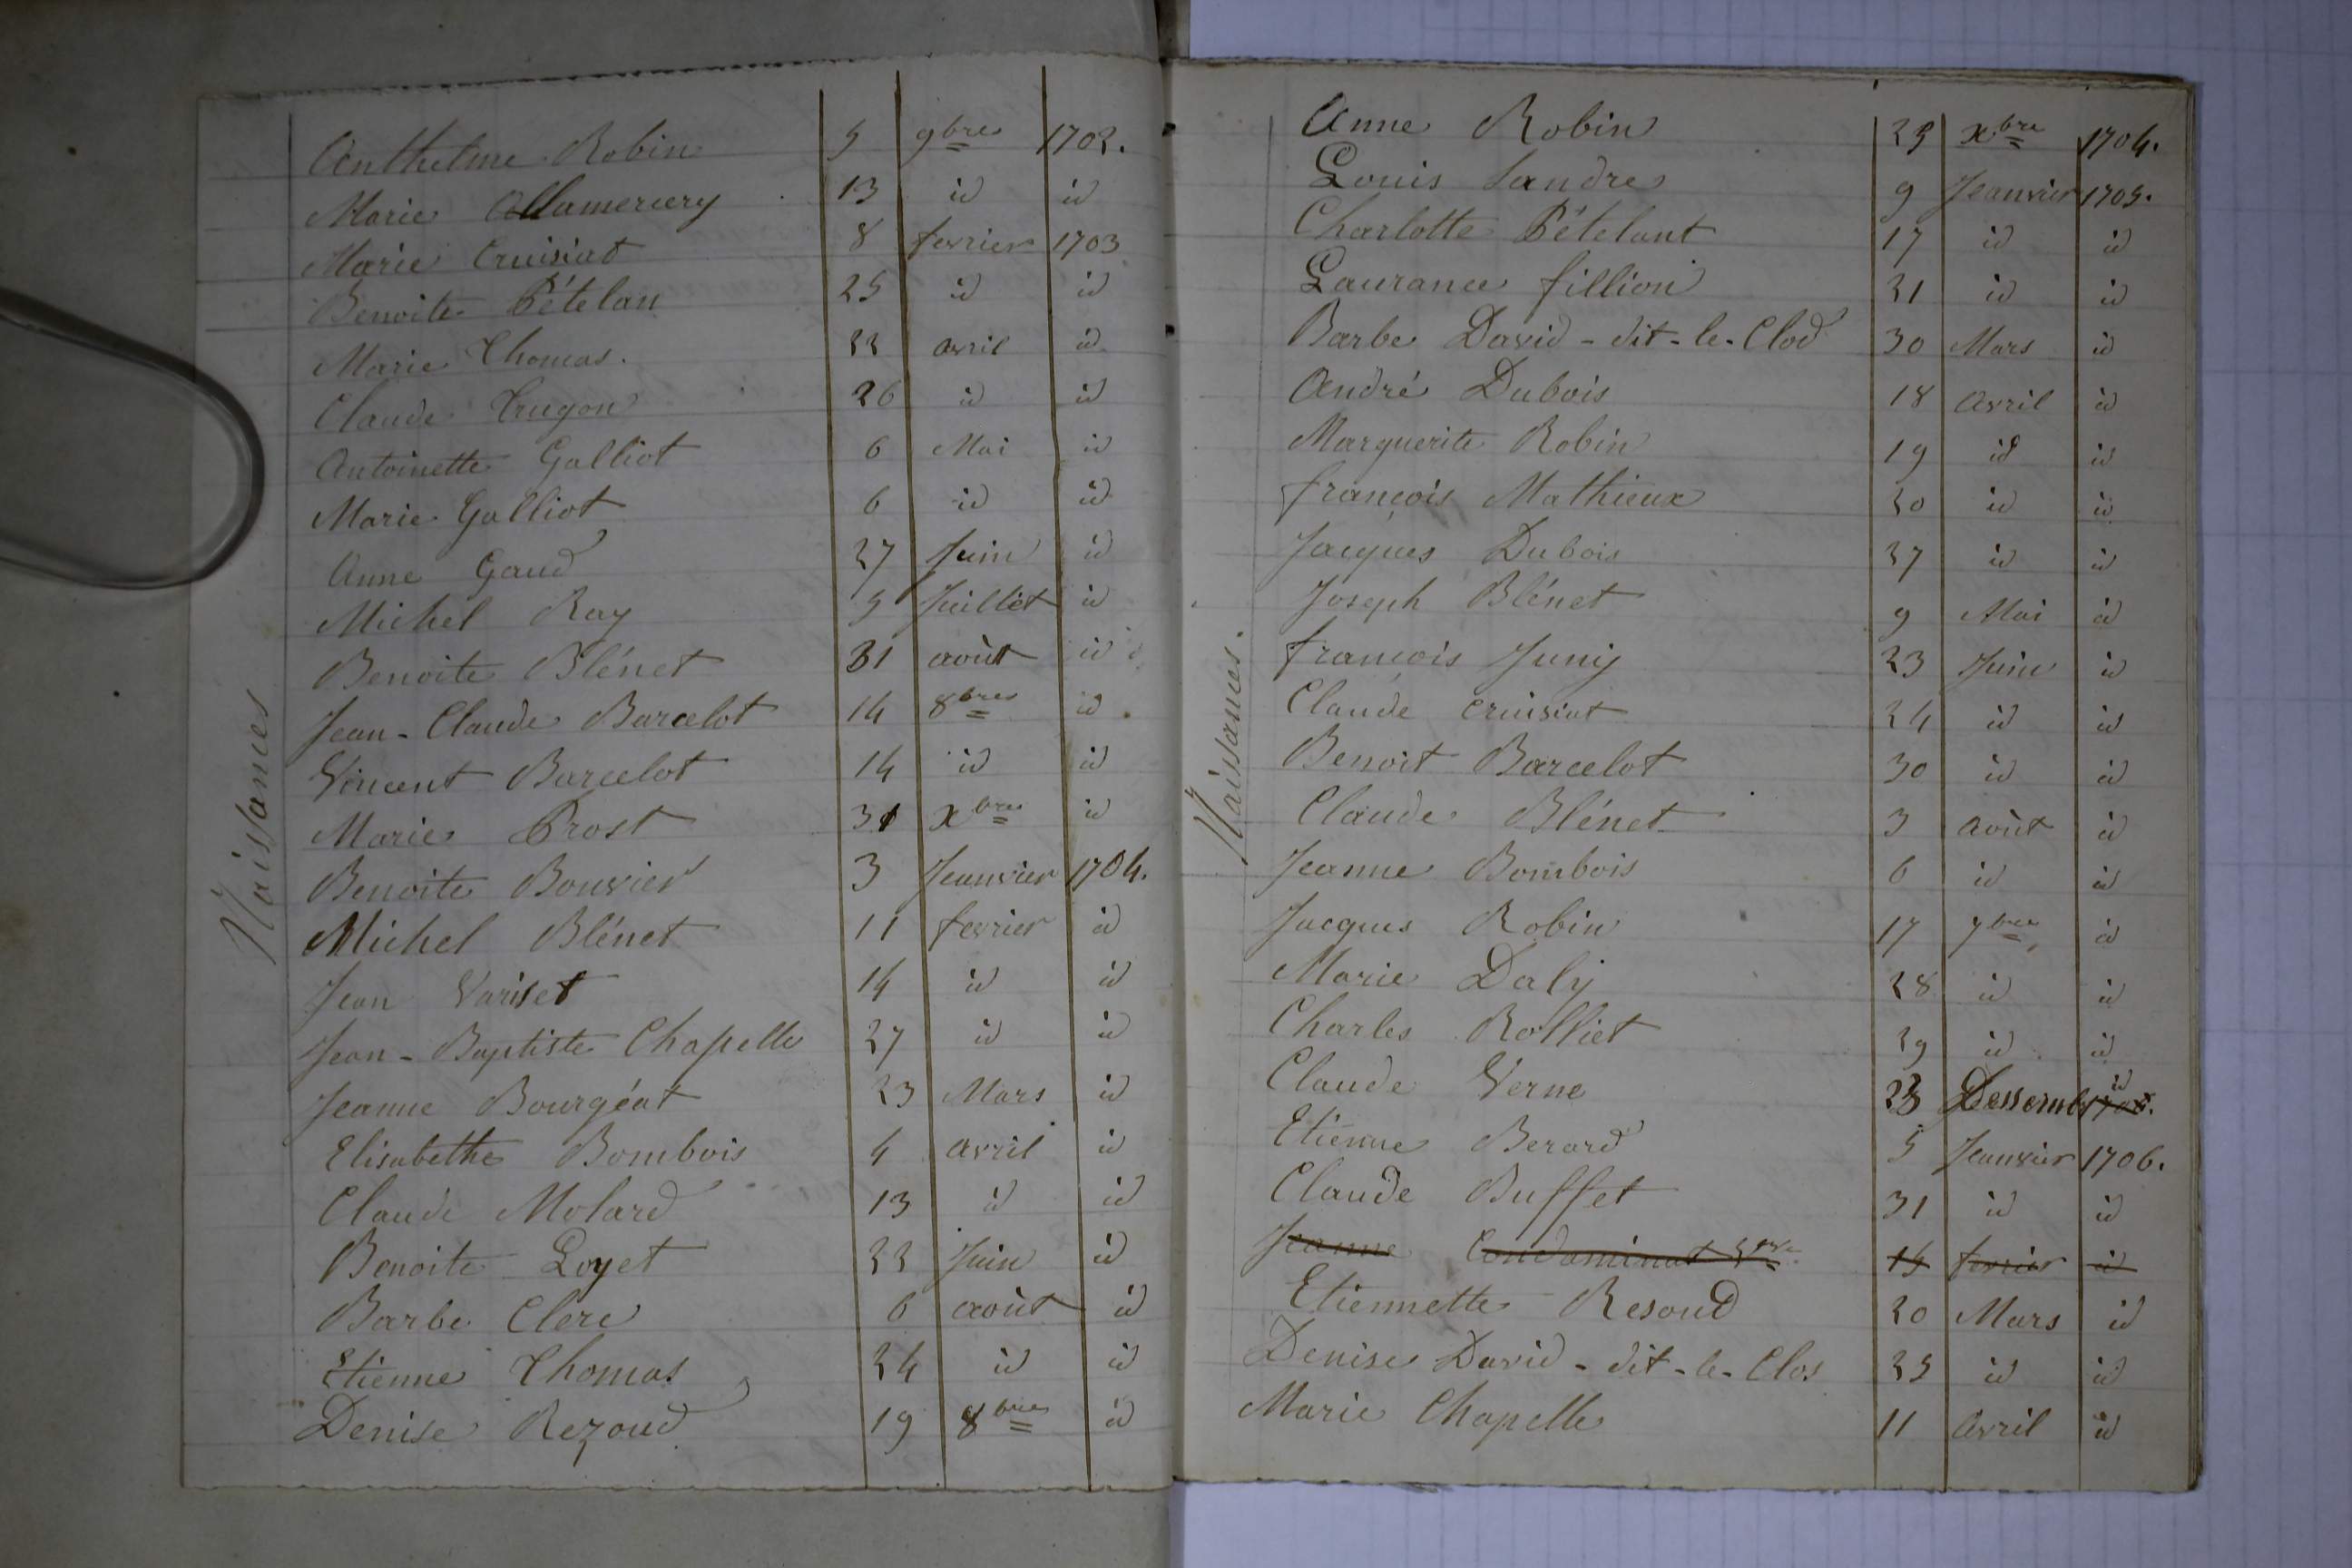 Naissances
Anthelme Robin 5 9bre 1702.
Marie Allamercery 13 id id
Marie Cruisiat 8 fevrier 1703
Benoite Pételan 25 id id
Marie Thomas. 22 avril id
Claude Trugon 26 id id
Antoinette Galliot 6 Mai id
Marie Galliot 6 id id
Anne Gaud 27 Juin id
Michel Ray 5 Juillet id
Benoite Blénet 31 août id
Jean-Claude Barcelot 14 8bre id
Vincent Barcelot 14 id id
Marie Prost 31 xbre id
Benoite Bouvier 3 Jeanvier 1704.
Michel Blénet 11 fevrier id
Jean Variset 14 id id
Jean-Baptiste Chapelle 27 id id
Jeanne Bourgéat 23 Mars id
Elisabethe Bombois 4 avril id
Claude Molard 13 id id
Benoite Loyet 22 Juin id
Barbe Clerc 6 août id
Etienne Thomas 24 id id
Denise Rezoud 19 8bre id
Naissances.
Anne Robin 25 xbre 1704.
Louis Sandre 9 Jeanvier 1705.
Charlotte Pételant 17 id id
Laurance fillion 21 id id
Barbe David-dit-le-Clod 30 Mars id
André Dubois 18 Avril id
Marguerite Robin 19 id id
françois Mathieux 20 id id
Jacques Dubois 27 id id
Joseph Blénet 9 Mai id
françois Juny 23 Juin id
Claude Cruisiat 24 id id
Benoit Barcelot 30 id id
Claude Blénet 3 août id
Jeanne Bombois 6 id id
Jacques Robin 17 7bre id
Marie Daly 28 id id
Charles Rolliet 29 id id
Claude Verne 23 Dessemb id
Etienne Berard 5 Jeanvier 1706.
Claude Buffet 31 id id
Jeanne Condaminat 15 fevrier id
Etiennette Resoud 20 Mars id
Denise David-dit-le-Clos 25 id id
Marie Chapelle 11 Avril id